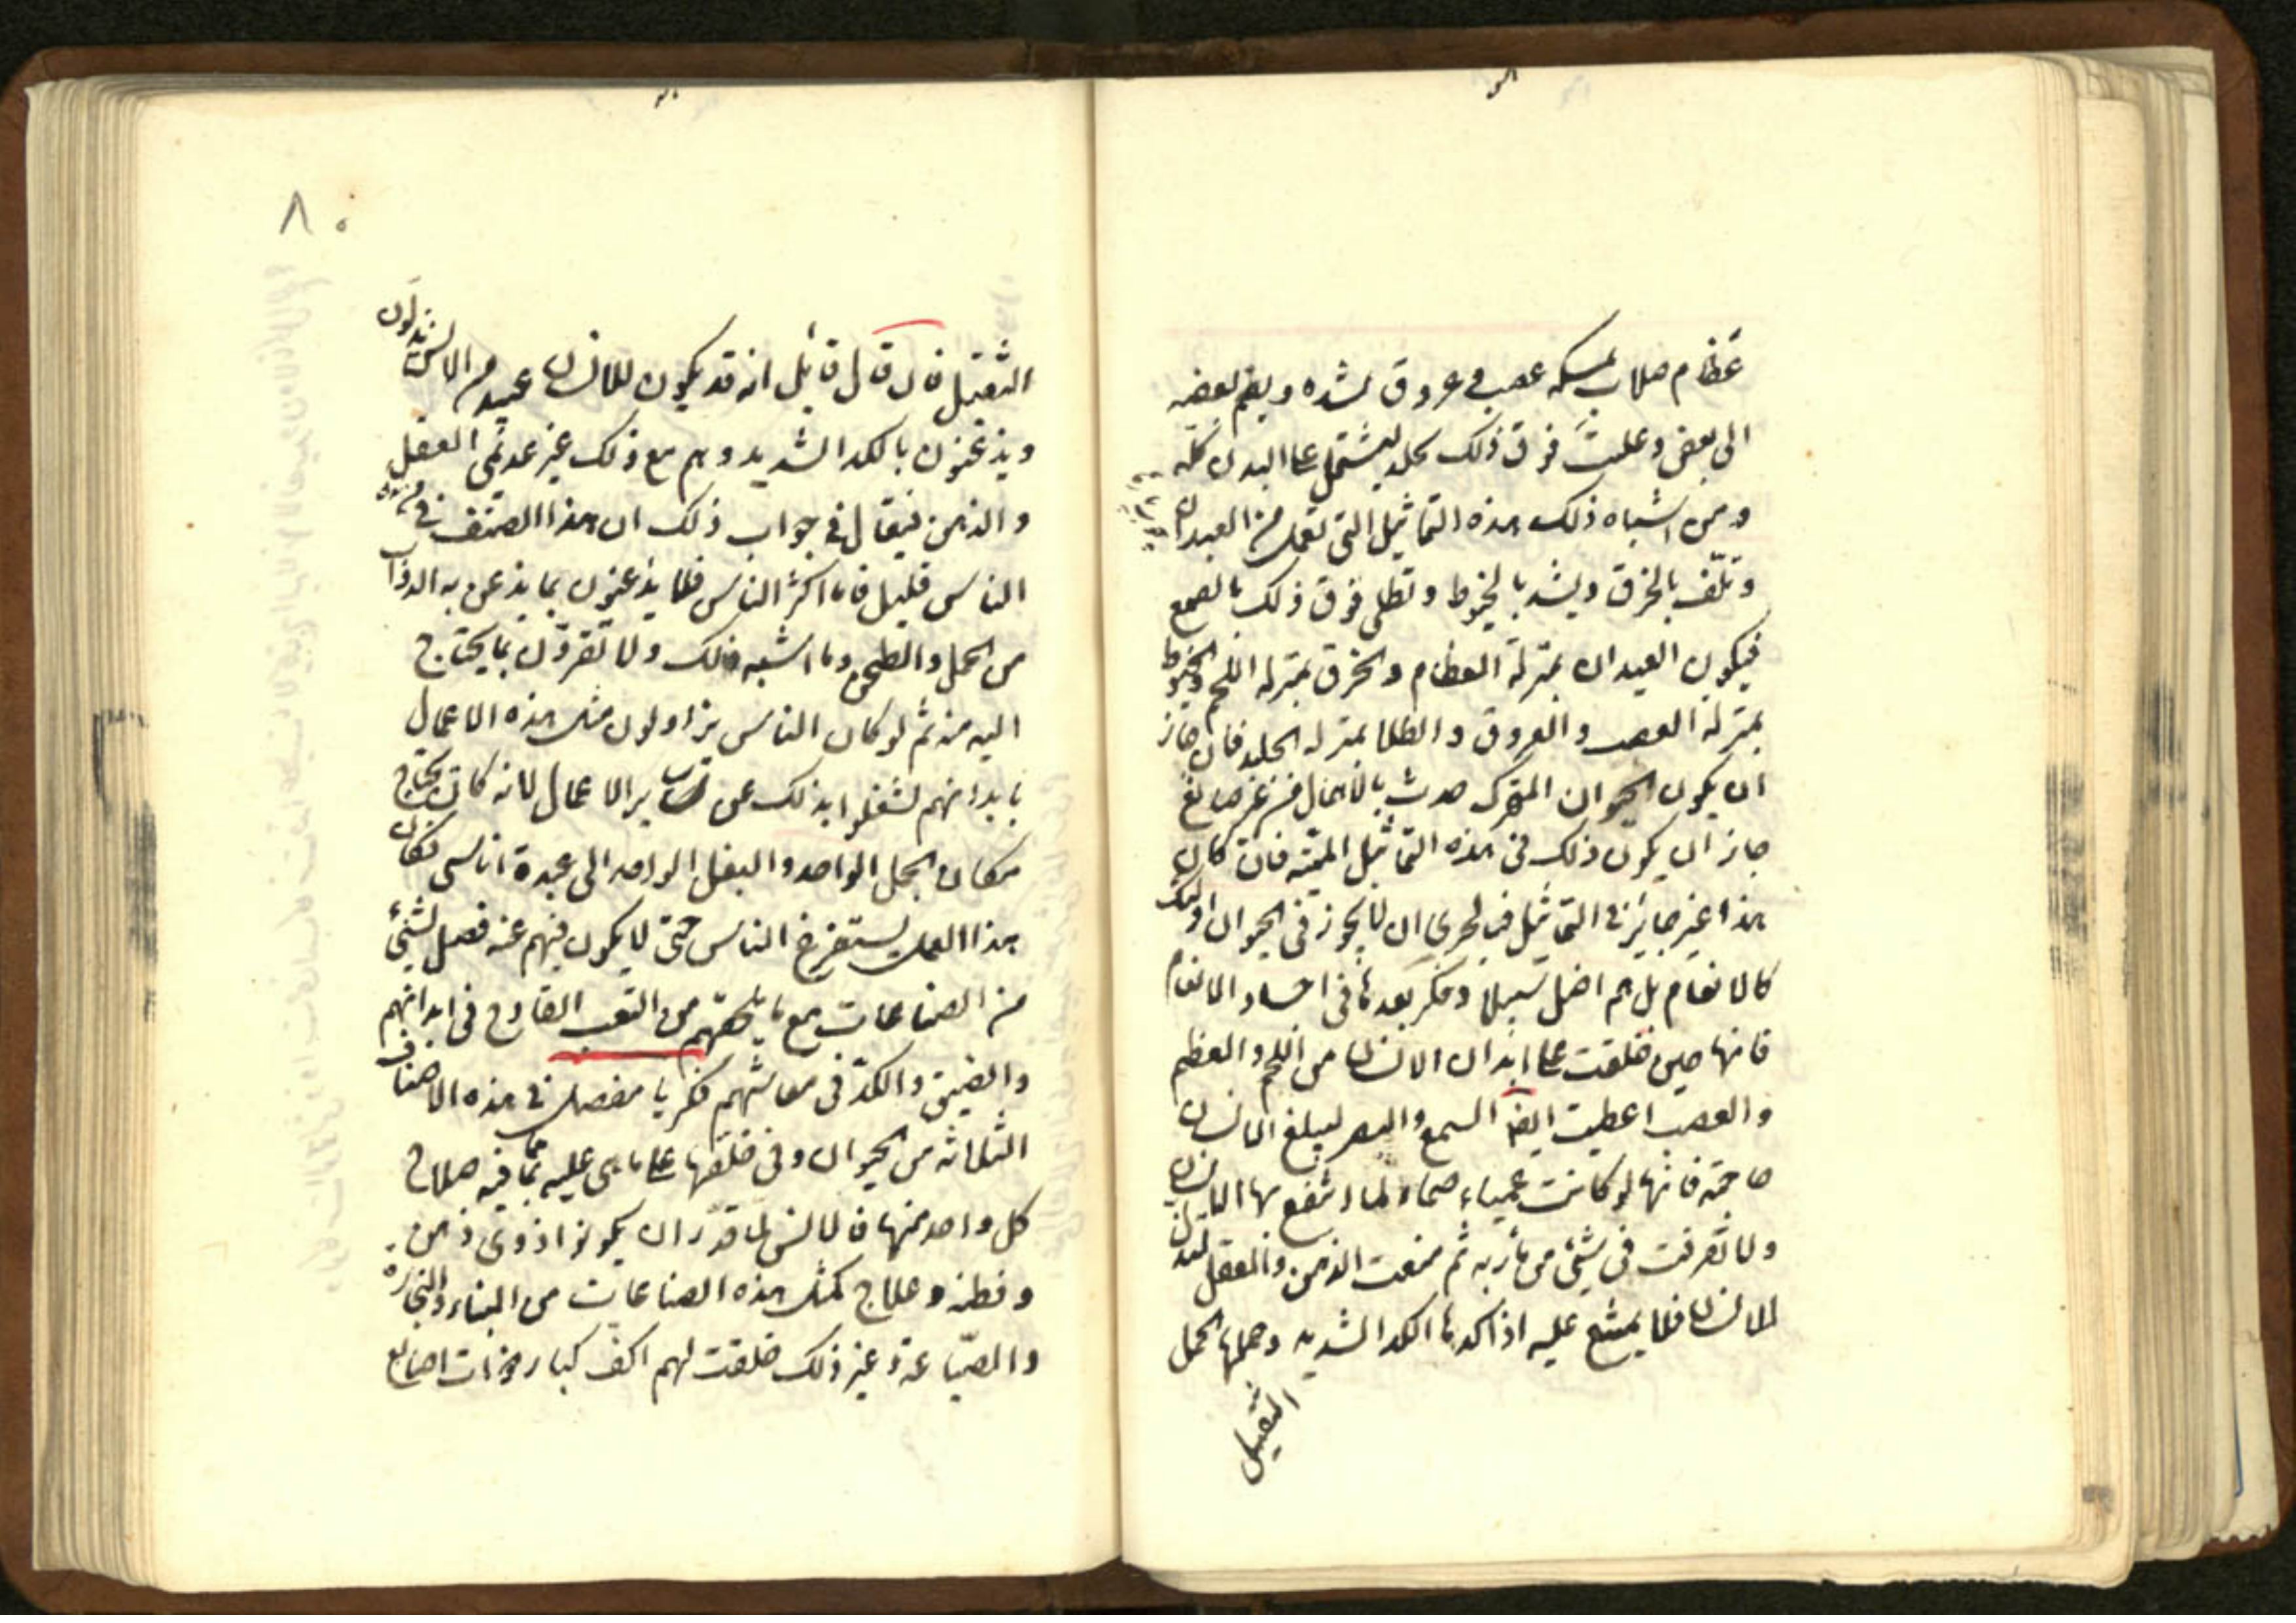 عظام صلاب يمسكه عصب و عروق يشده ويضم بعضه
الى بعض وعليت فوق ذلك بجلد يشتمل على البدن كله
ومن اشباه ذلك هذه التماثيل التي تعمل من العيدان
وتلف بالخرق ويشد بالخيوط وتطلى فوق ذلك بالصمغ
فيكون العيدان بمنزلة العظام والخرق بمنزلة اللحم والخيوط
بمنزلة العصب والعروق والطلا بمنزلة الجلد فان جاز
ان يكون الحيوان المتحرك حدث بالاهمال من غير صانع
جاز ان يكون ذلك في هذه التماثيل الميتة فان كان
هذا غير جايز في التماثيل فبالحرى ان لا يجوز في الحيوان
كالانعام بل هم اضل سبيلا وفكر بعد هذا في اجساد الانعام
فانها حين خلقت على ابدان الانسان من اللحم والعظم
والعصب اعطيت ايضا السمع والبصر ليبلغ الانسان
حاجته فانها لو كانت عمياء صماء لما انتفع بها الانسان
ولا تصرفت في شيء من مأربه ثم منعت الذهن والعقل لتذل
للانسان فلا يمتنع عليه اذا كدها الكد الشديد وحملها الحمل
الثقيل
٨٠
الثقيل فان قال قائل انه قد يكون للانسان عبيد من الانس يذلون
ويذعنون بالكد الشديد وهم مع ذلك غير عديمي العقل
والذهن فيقال في جواب ذلك ان هذا الصنف من
الناس قليل فاما اكثر الناس فلا يذعنون بما يذعن به الدواب
من الحمل والطحن وما اشبه ذلك ولا تقرون بما يحتاج
اليه منه ثم لو كان الناس يزاولون مثل هذه الاعمال
بابدانهم لشغلوا بذلك عن ساير الاعمال لانه كان يحتاج
مكان الجمل الواحد والبغل الواحد الى عدة اناسي فكان
هذا العمل يستفرغ الناس حتى لا يكون فيهم عنه فضل لشيء
من الصناعات مع ما يلحقهم من التعب الفادح في ابدانهم
والضيق والكد في معاشهم فكر يا مفضل في هذه الاصناف
الثلاثة من الحيوان وفي خلقها على ما هي عليه مما فيه صلاح
كل واحد منها فالانس لما قدر ان يكونوا ذوي ذهن
وفطنة وعلاج لمثل هذه الصناعات من البناء والنجارة
والصياغة وغير ذلك خلقت لهم اكف كبار ذوات اصابع